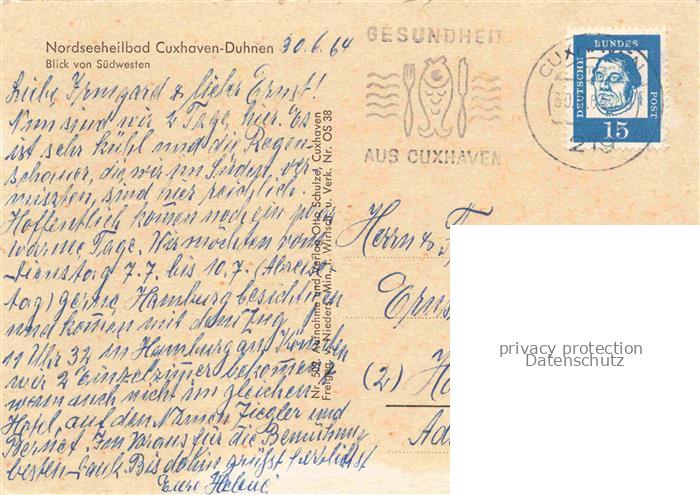 Nordseeheilbad Cuxhaven-Duhnen 30.6.64
Blick von Südwesten
Liebe Irmgard & lieber Ernst!
Nun sind wir 2 Tage hier. Es
ist sehr kühl und die Regen
schauer, die wir im Süden ver
missten, sind hier reichlich.
Hoffentlich kommen noch ein paar
warme Tage. Wir möchten vom
Dienstag 7.7. bis 10.7. (Abreise
tag) gerne Hamburg besichtigen
und kommen mit dem Zug
11 Uhr 32 in Hamburg an. Könnten
wir 2 Einzelzimmer bekommen
wenn auch nicht im gleichen
Hotel, auf den Namen Ziegler und
Bernet. Im Voraus für die Bemühung
besten Dank. Bis dahin grüsst herzlichst
Eure Helene
Nr. 502 Aufnahme und Verlag Otto Schulze, Cuxhaven
Freigeg. Nieders. Min. f. Wirtsch. u. Verk. Nr. OS 38
GESUNDHEIT
AUS CUXHAVEN
CUXHAVEN
219
DEUTSCHE
BUNDES
POST
15
Herrn &
Ernst
(2)
privacy protection
Datenschutz